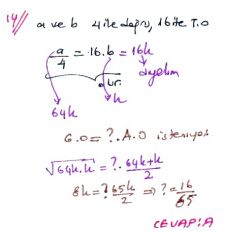 14) a ve b 4 ile doğru, 16 ile T.O
a/4 = 16.b = 16k
diyelim
64k
k
G.O = ?. A.O isteniyor
√64k.k = ?. 64k+k/2
8k = ? 65k/2 ⇒ ? = 16/65
CEVAP: A